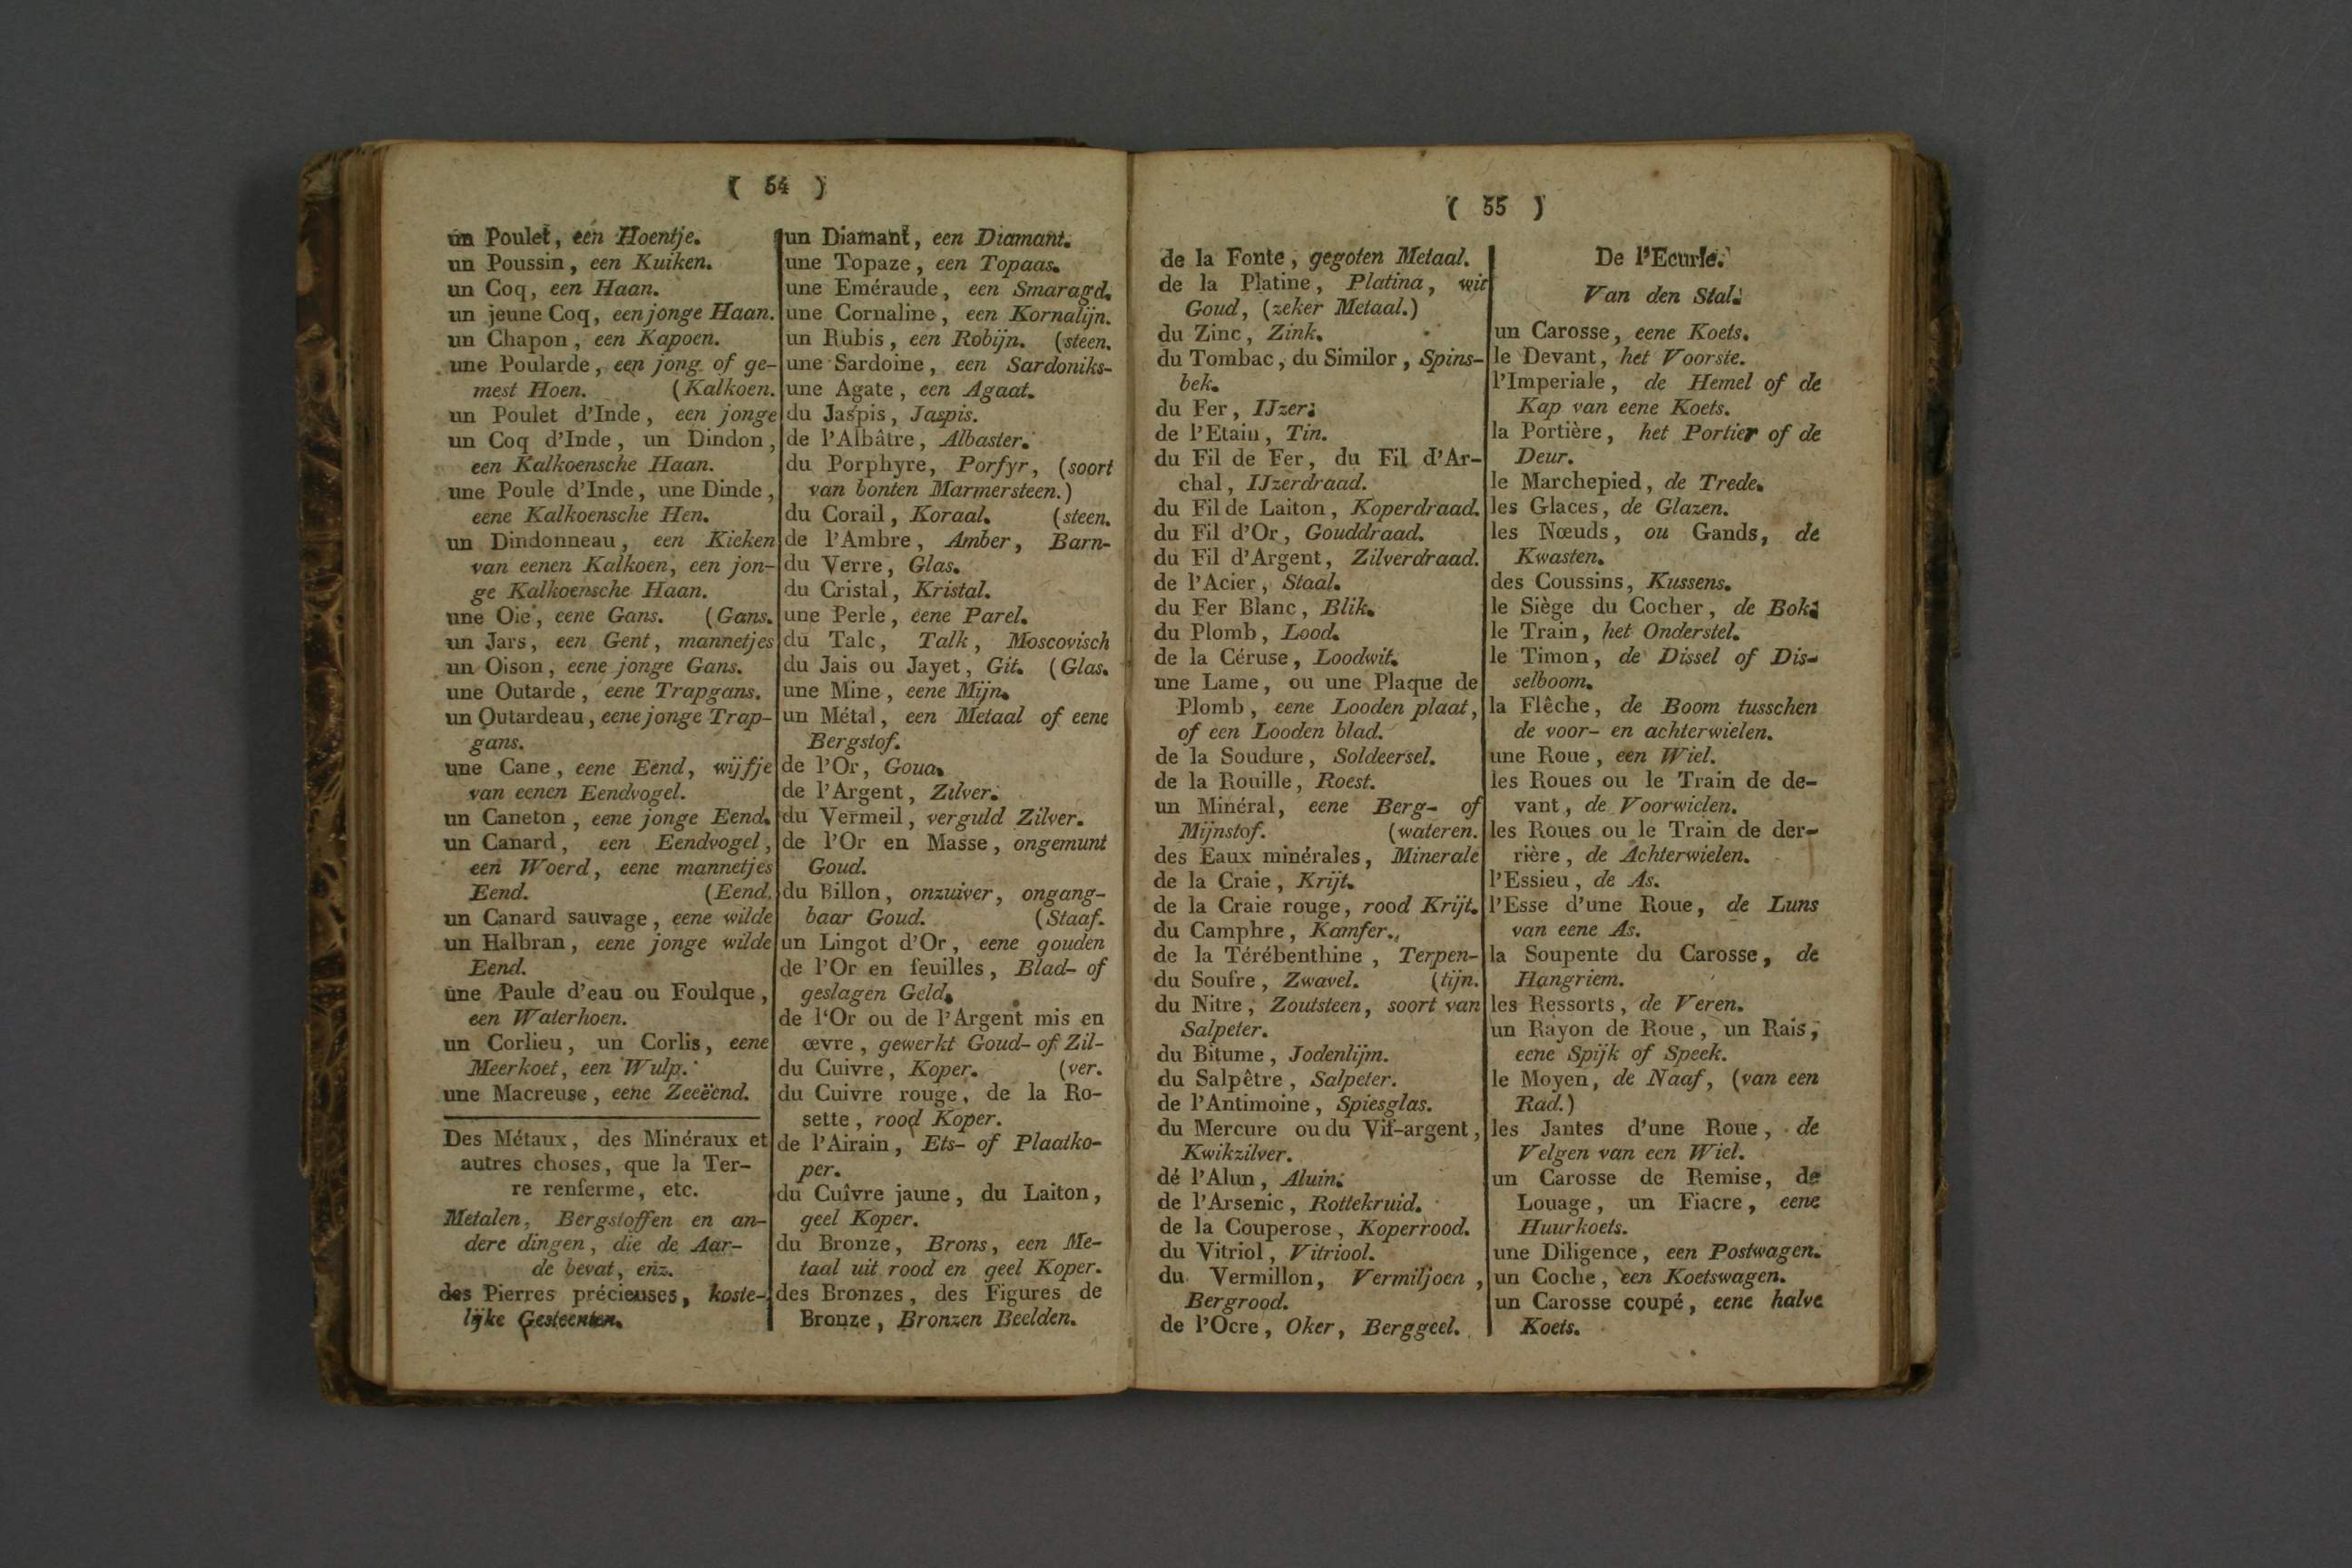 ( 54 )
un Poulet, een Hoentje.
un Poussin, een Kuiken.
un Coq, een Haan.
un jeune Coq, een jonge Haan.
un Chapon, een Kapoen.
une Poularde, een jong of ge-
mest Hoen. (Kalkoen.
un Poulet d'Inde, een jonge
un Coq d'Inde, un Dindon,
een Kalkoensche Haan.
une Poule d'Inde, une Dinde,
eene Kalkoensche Hen.
un Dindonneau, een Kieken
van eenen Kalkoen, een jon-
ge Kalkoensche Haan.
une Oie, eene Gans. (Gans.
un Jars, een Gent, mannetjes
un Oison, eene jonge Gans.
une Outarde, eene Trapgans.
un Outardeau, eene jonge Trap-
gans.
une Cane, eene Eend, wijfje
van eenen Eendvogel.
un Caneton, eene jonge Eend.
un Canard, een Eendvogel,
een Woerd, eene mannetjes
Eend. (Eend.
un Canard sauvage, eene wilde
un Halbran, eene jonge wilde
Eend.
une Paule d'eau ou Foulque,
een Waterhoen.
un Corlieu, un Corlis, eene
Meerkoet, een Wulp.
une Macreuse, eene Zeeëend.
Des Métaux, des Minéraux et
autres choses, que la Ter-
re renferme, etc.
Metalen, Bergstoffen en an-
dere dingen, die de Aar-
de bevat, enz.
des Pierres précieuses, koste-
lijke Gesteenten.
un Diamant, een Diamant.
une Topaze, een Topaas.
une Eméraude, een Smaragd.
une Cornaline, een Kornalijn.
un Rubis, een Robijn. (steen.
une Sardoine, een Sardoniks-
une Agate, een Agaat.
du Jaspis, Jaspis.
de l'Albâtre, Albaster.
du Porphyre, Porfyr, (soort
van bonten Marmersteen.)
du Corail, Koraal. (steen.
de l'Ambre, Amber, Barn-
du Verre, Glas.
du Cristal, Kristal.
une Perle, eene Parel.
du Talc, Talk, Moscovisch
du Jais ou Jayet, Git. (Glas.
une Mine, eene Mijn.
un Métal, een Metaal of eene
Bergstof.
de l'Or, Goud.
de l'Argent, Zilver.
du Vermeil, verguld Zilver.
de l'Or en Masse, ongemunt
Goud.
du Billon, onzuiver, ongang-
baar Goud. (Staaf.
un Lingot d'Or, eene gouden
de l'Or en feuilles, Blad- of
geslagen Geld.
de l'Or ou de l'Argent mis en
œvre, gewerkt Goud- of Zil-
du Cuivre, Koper. (ver.
du Cuivre rouge, de la Ro-
sette, rood Koper.
de l'Airain, Ets- of Plaatko-
per.
du Cuîvre jaune, du Laiton,
geel Koper.
du Bronze, Brons, een Me-
taal uit rood en geel Koper.
des Bronzes, des Figures de
Bronze, Bronzen Beelden.
( 55 )
de la Fonte, gegoten Metaal.
de la Platine, Platina, wit
Goud, (zeker Metaal.)
du Zinc, Zink.
du Tombac, du Similor, Spins-
bek.
du Fer, IJzer.
de l'Etain, Tin.
du Fil de Fer, du Fil d'Ar-
chal, IJzerdraad.
du Fil de Laiton, Koperdraad.
du Fil d'Or, Gouddraad.
du Fil d'Argent, Zilverdraad.
de l'Acier, Staal.
du Fer Blanc, Blik.
du Plomb, Lood.
de la Céruse, Loodwit.
une Lame, ou une Plaque de
Plomb, eene Looden plaat,
of een Looden blad.
de la Soudure, Soldeersel.
de la Rouille, Roest.
un Minéral, eene Berg- of
Mijnstof. (wateren.
des Eaux minérales, Minerale
de la Craie, Krijt.
de la Craie rouge, rood Krijt.
du Camphre, Kamfer.
de la Térébenthine, Terpen-
du Soufre, Zwavel. (tijn.
du Nitre, Zoutsteen, soort van
Salpeter.
du Bitume, Jodenlijm.
du Salpêtre, Salpeter.
de l'Antimoine, Spiesglas.
du Mercure ou du Vif-argent,
Kwikzilver.
dé l'Alun, Aluin.
de l'Arsenic, Rottekruid.
de la Couperose, Koperrood.
du Vitriol, Vitriool.
du Vermillon, Vermiljoen,
Bergrood.
de l'Ocre, Oker, Berggeel.
De l'Ecurie.
Van den Stal.
un Carosse, eene Koets.
le Devant, het Voorste.
l'Imperiale, de Hemel of de
Kap van eene Koets.
la Portière, het Portier of de
Deur.
le Marchepied, de Trede.
les Glaces, de Glazen.
les Nœuds, ou Gands, de
Kwasten.
des Coussins, Kussens.
le Siège du Cocher, de Bok.
le Train, het Onderstel.
le Timon, de Dissel of Dis-
selboom.
la Flêche, de Boom tusschen
de voor- en achterwielen.
une Roue, een Wiel.
les Roues ou le Train de de-
vant, de Voorwielen.
les Roues ou le Train de der-
rière, de Achterwielen.
l'Essieu, de As.
l'Esse d'une Roue, de Luns
van eene As.
la Soupente du Carosse, de
Hangriem.
les Ressorts, de Veren.
un Rayon de Roue, un Rais,
eene Spijk of Speek.
le Moyen, de Naaf, (van een
Rad.)
les Jantes d'une Roue, de
Velgen van een Wiel.
un Carosse de Remise, de
Louage, un Fiacre, eene
Huurkoets.
une Diligence, een Postwagen.
un Coche, een Koetswagen.
un Carosse coupé, eene halve
Koets.